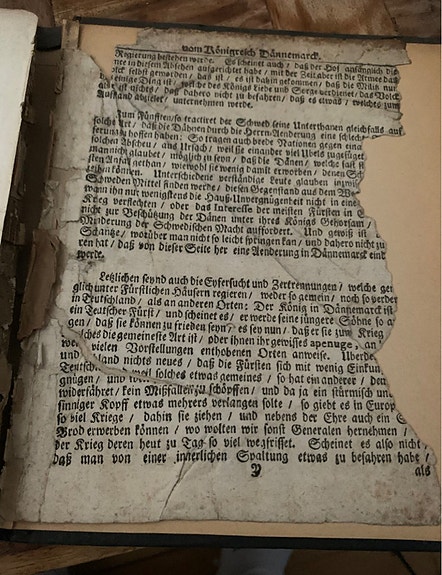 vom Königreich Dännemarck.
Regierung bestehen werde. Es scheinet auch / daß der Hof anfänglich die
in diesem Absehen aufgerichtet habe / mit der Zeit aber ist die Armee das
selbst geworden / daß ist / es ist dahin gekommen / daß die Miliz nur
einige Ding ist / welche des Königs Liebe und Sorge verdienet / das Volck
ist nichts / daß dahero nicht zu befahren / daß es etwas / welches zum
Aufstand abzielet / unternehmen werde.
Zum Fünfften / so tractiret der Schwed seine Unterthanen gleichfalls auf
solche Art / daß die Dähnen durch die Herrn-Aenderung eine schlechte
zu hoffen haben: So tragen auch beede Nationen gegen eina
solchen Abscheu / aus Ursach / weil sie einander viel Ubels zugefüget
man nicht glaubet / möglich zu seyn / daß die Dänen / welche fast i
sten Anfall gethan / wiewohl sie wenig damit erworben / denen Sch
können. Unterschiedene verständige Leute glauben inzwi
Schweden Mittel finden werde / diesen Gegenstand aus dem We
wann ihn nur wenigstens die Hauß-Unvergnügenheit nicht in eine
Krieg verflechten / oder das Interesse der meisten Fürsten in E
nicht zur Beschützung der Dänen unter ihres Königs Gehorsam /
Minderung der Schwedischen Macht auffordert. Und gewiß ist
Schantze / worüber man nicht so leicht springen kan / und dahero nicht zu
ren hat / daß von dieser Seite her eine Aenderung in Dännemarck eind
werde.
Letzlichen seynd auch die Eyfersucht und Zertrennungen / welche ge
glich unter Fürstlichen Häusern regieren / weder so gemein / noch so verder
in Teutschland / als an anderen Orten: Der König in Dännemarck ist
ein Teutscher Fürst / und scheinet es / er werde seine jüngere Söhne so a
gen / daß sie können zu frieden seyn / es sey nun / daß er sie zum Krieg
solches die gemeinste Art ist / oder ihnen ihr gewisses apenage kan
vielen Vorstellungen enthobenen Orten anweise. Überde
und nichts neues / daß die Fürsten sich mit wenig Einkun
Teutschl
gnügen / und weil solches etwas gemeines / so hat ein anderer / den
widerfähret / kein Mißfallen zu schöpffen / und da ja ein stürmisch un
sinniger Kopff etwas mehrers verlangen solte / so giebt es in Europ
so viel Kriege / dahin sie ziehen / und nebens der Ehre auch ein G
Brod erwerben können / wo wolten wir sonst Generalen hernehmen /
der Krieg deren heut zu Tag so viel wegfrisset. Scheinet es also nicht /
daß man von einer innerlichen Spaltung etwas zu befahren habe /
Y
als